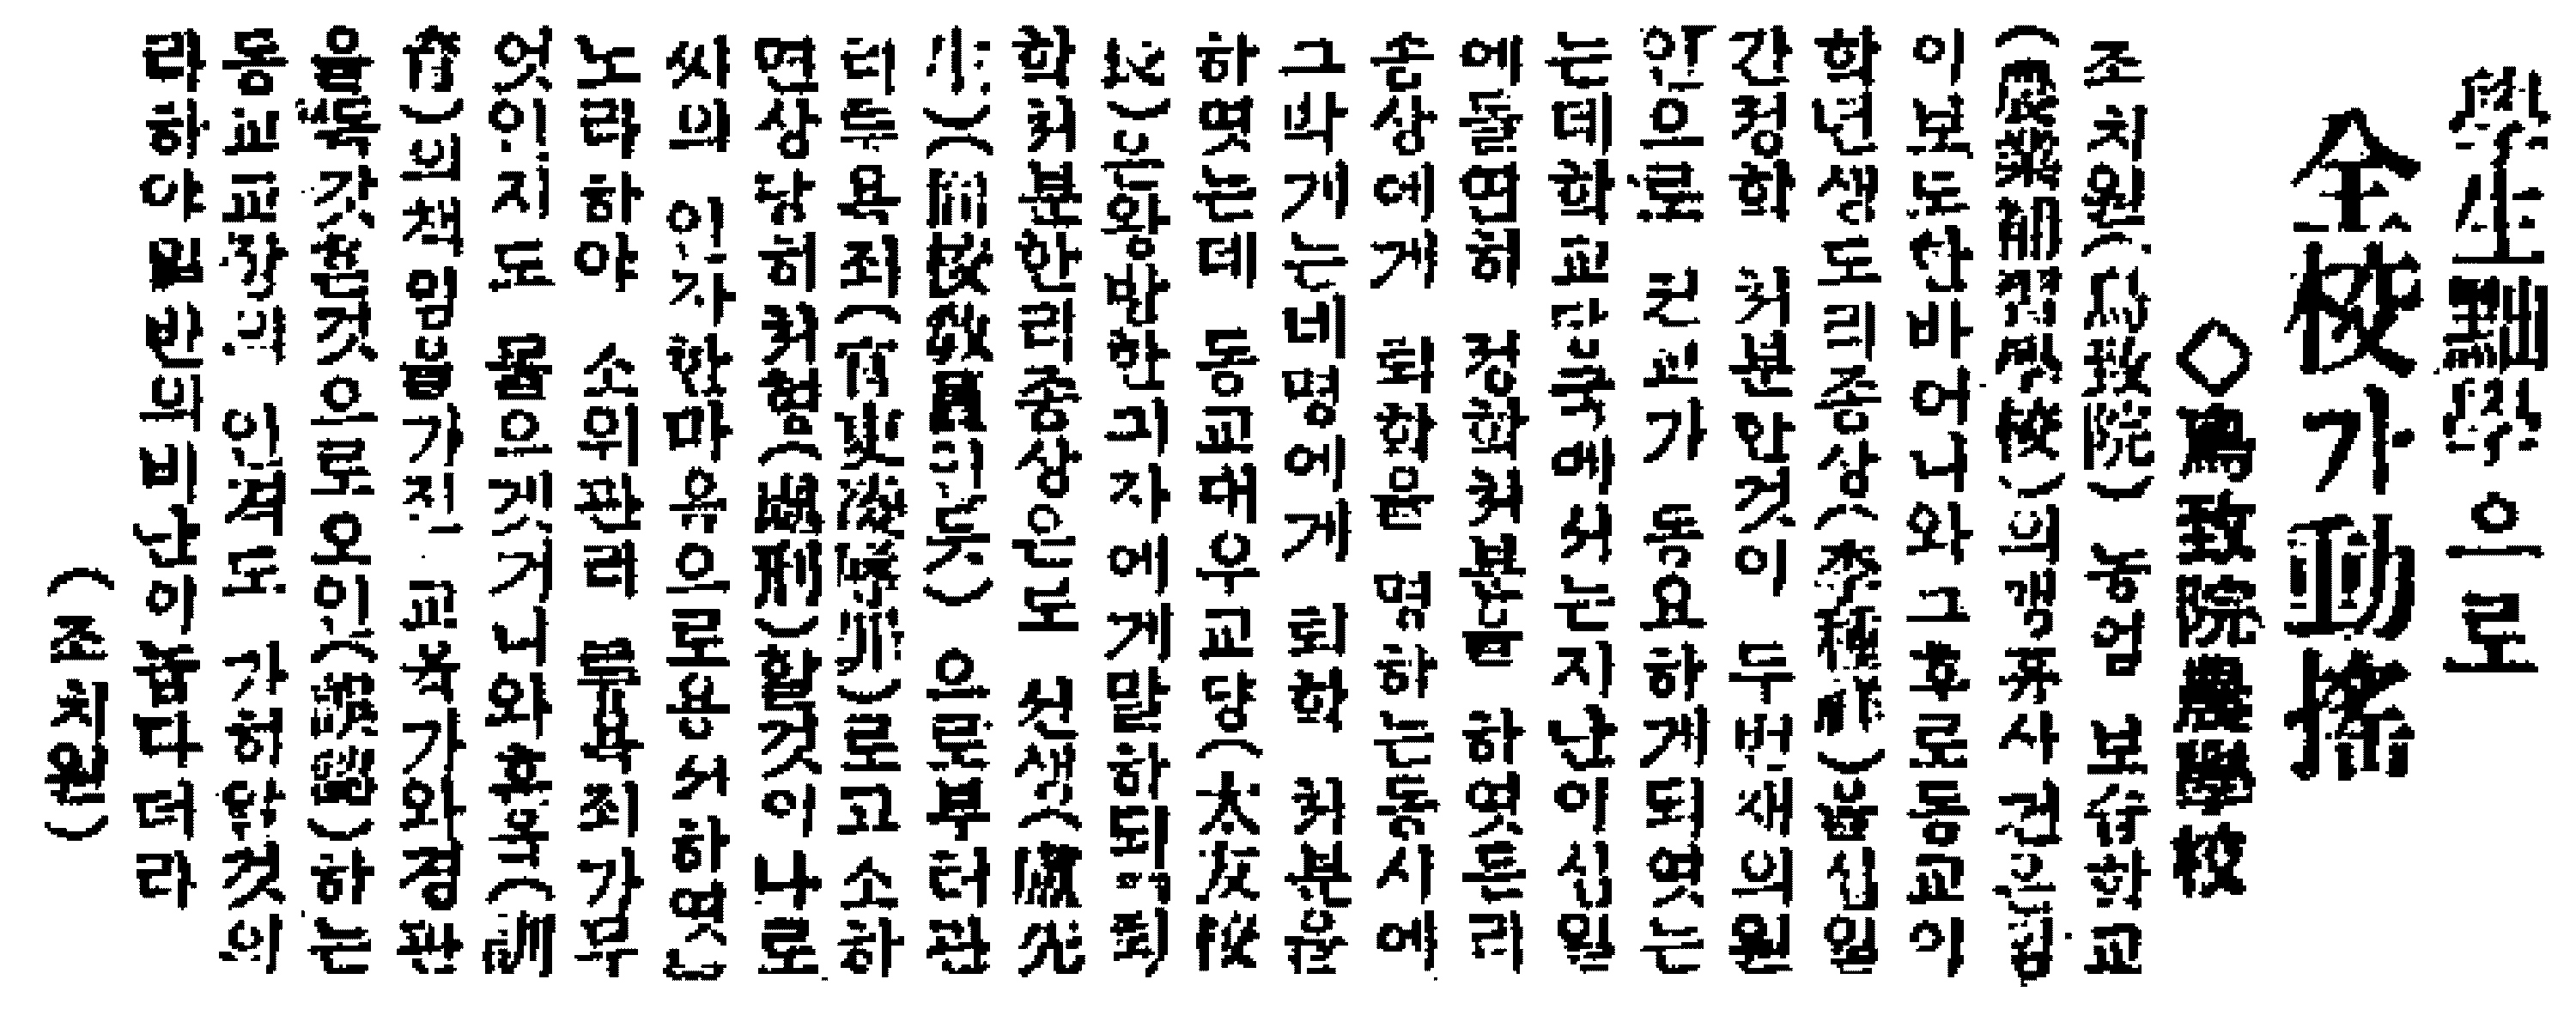 學生黜學으로
全校가動搖
◇鳥致院農業學校
조치원(鳥致院) 농업 보습학교
(農業補習學校)의맹휴사건은임
이보도한바어니와그후로동교이
학년생도리종상(李種祥)는십일
간정학 처분한것이 두번재의원
인으로 전교가 동요하게되엿는
데학교당국에서는지난이십일
에돌연히 정학처분 하엿든리
종상에게 퇴학을 명하는동시에
그박게는네명에게 퇴학 처분을
하엿는데 동교대우교장(大友校
長)은왕방한긔자에게말하되퇴
학처분한리종상은도 선생(先
生)(補校鄭인준)으로부터란
더독직(瀆職)로고소하
연상당히처형(處刑)할것이나로
씨의 인자한마음으로용서하엿
노라하야 소위한리 독직죄가무
엇이지도 몰으겟거니와훈육(訓
育)의책임을가진 교육가와경관
을똑갓흔것으로오인(誤認)하는
동교교장의 인격도 가히알것의
라하야일반의비난이놉다더라
(조치원)